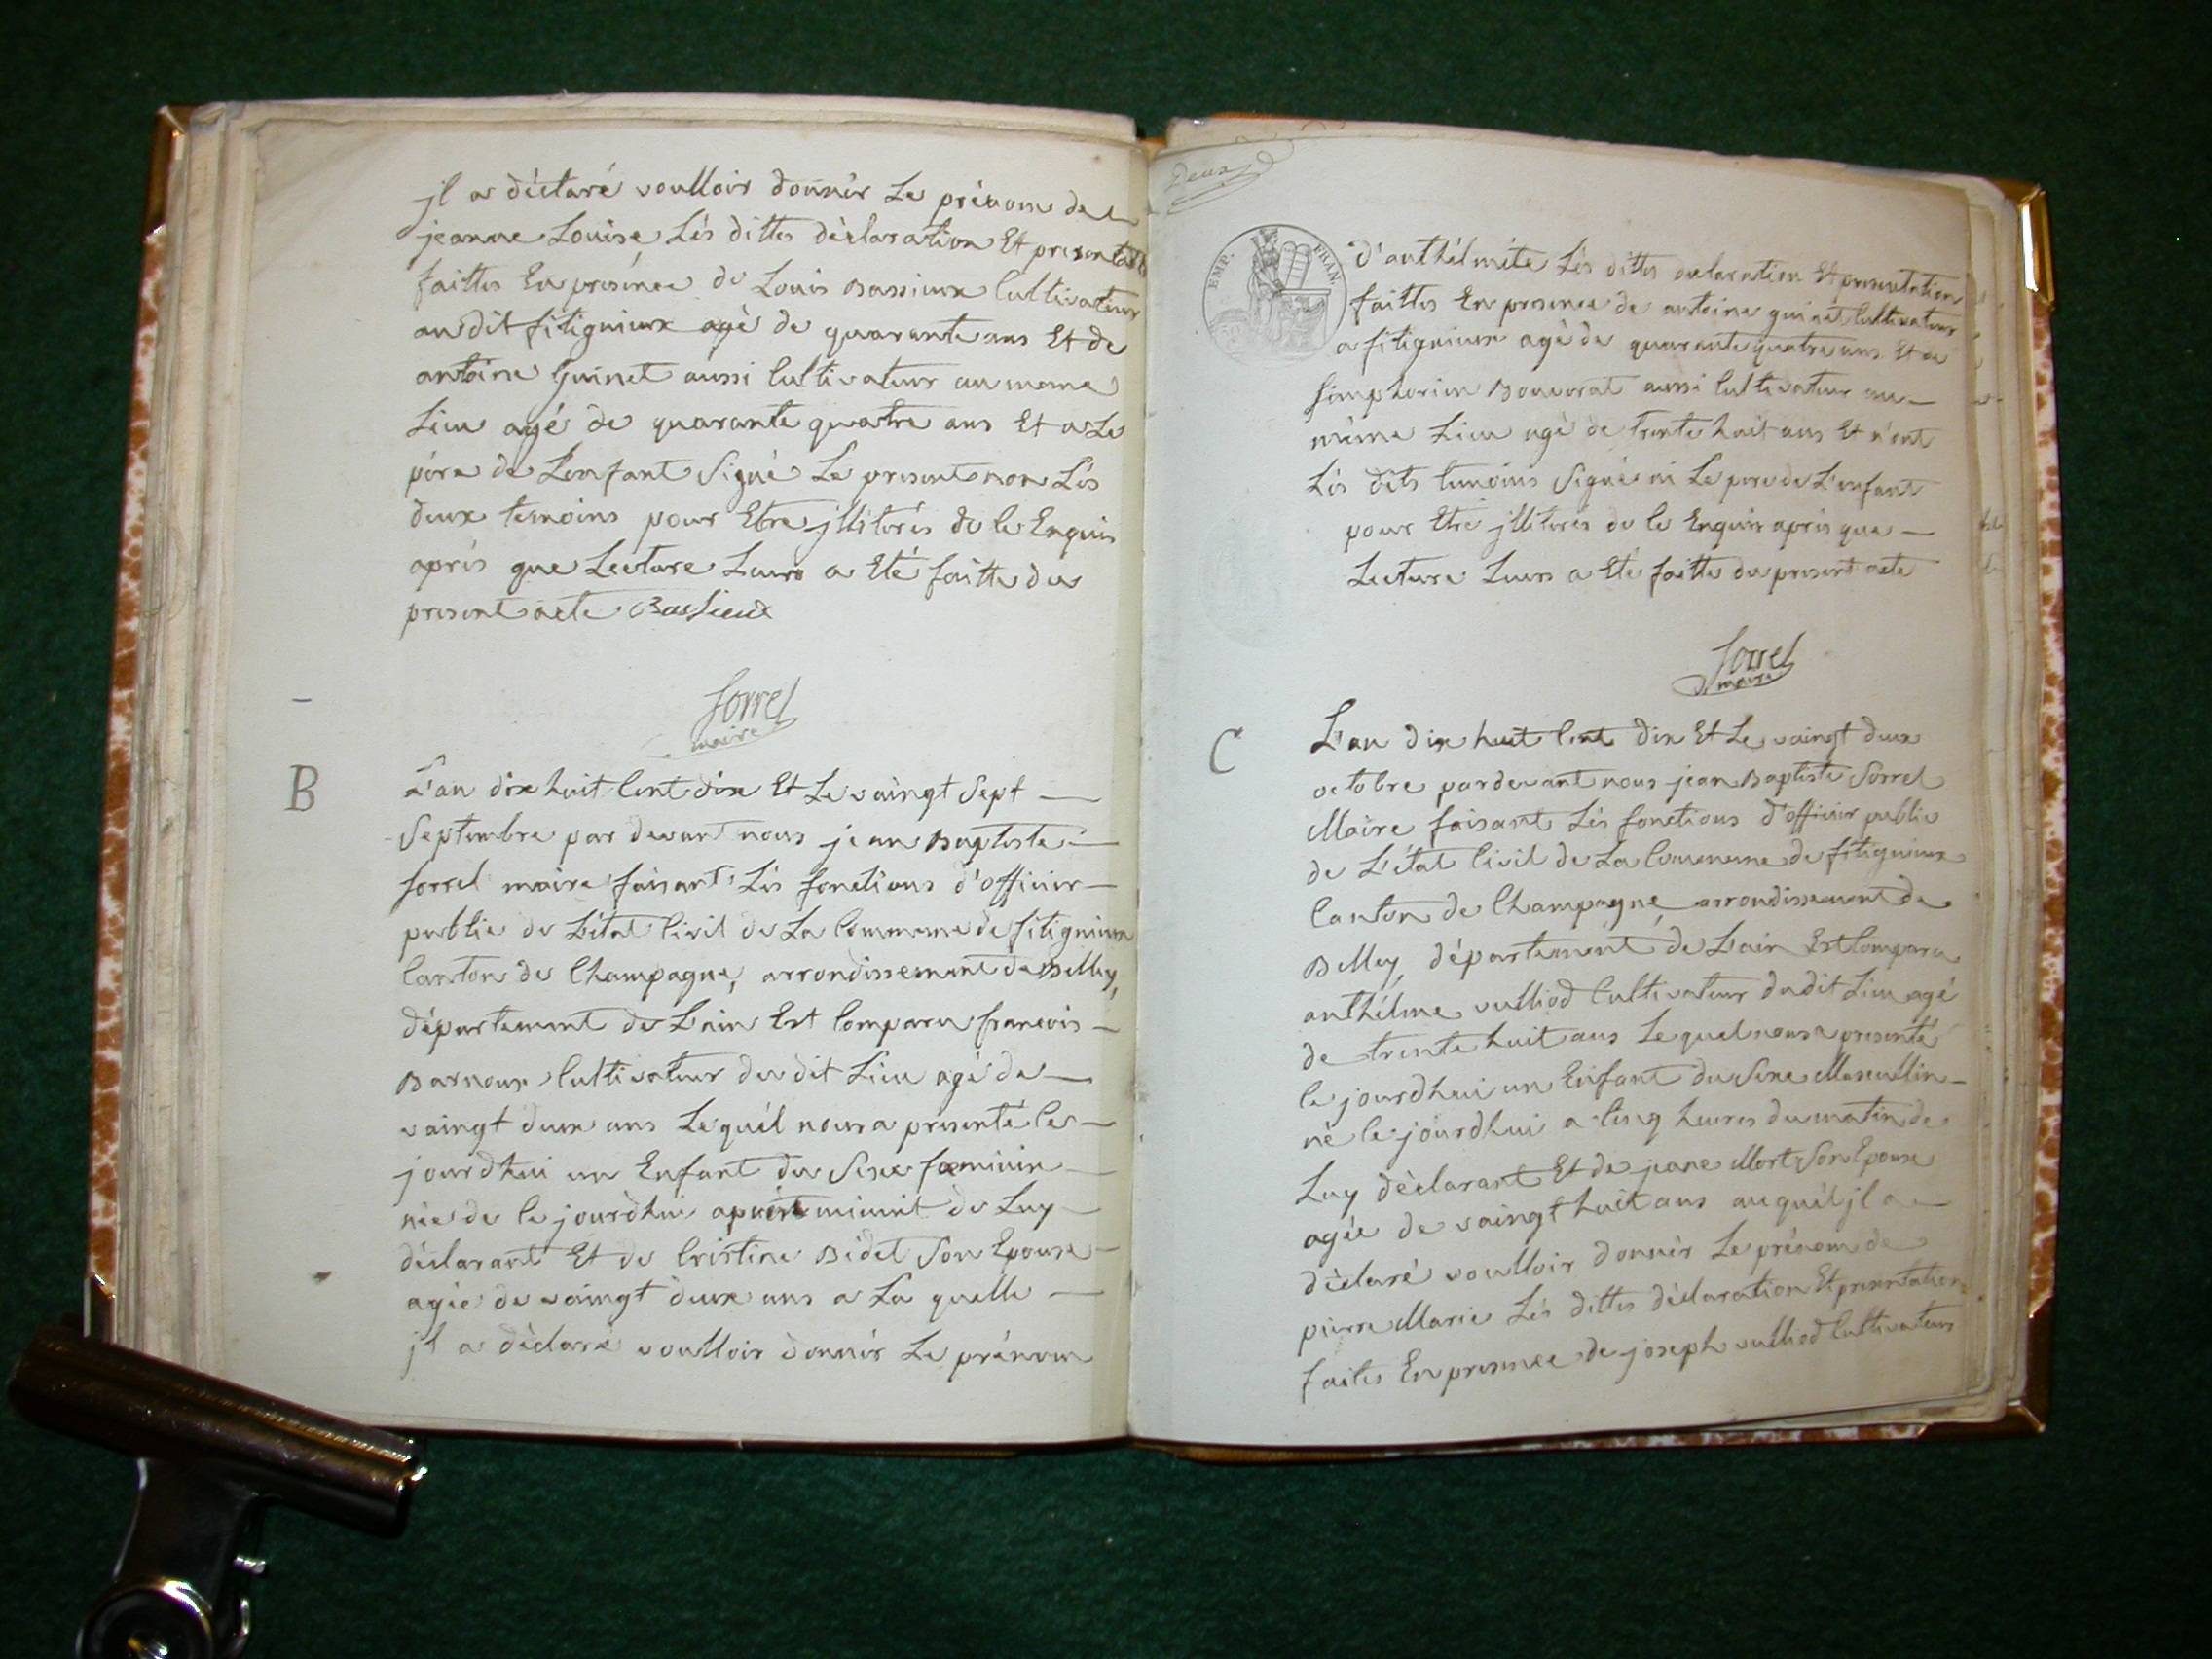 jl a dèclaré voulloir donnér Le prénom de
jeanne Louise Lés dittes dèclaration Et presentation
faittes En présence de Louis Bassieux Cultivateur
au dit fitignieux agè de quarante ans Et de
antoine Guinet aussi Cultivateur au meme
Lieu agé de quarante quatre ans Et a Le
pére de Lenfant Signé Le present non Lés
deux temoins pour Etre jllitérés de Ce Enquis
aprés que Lecture Leurs a Eté faitte du
present acte Bassieux
Sorrel
maire
B
L'an dix huit Cent dix Et Le vaingt Sept
Septembre par devant nous jean Baptiste
Sorrel maire faisant Lés fonctions d'officier
public de L'état Civil de La Commune de fitignieux
Canton de Champagne, arrondissement de Belley,
département de L'ain Est Comparu francois
Barnoux Cultivateur du dit Lieu agé de
vaingt deux ans Lequél nous a présenté Ce
jourdhui un Enfant du Sexe fœminin
née de Ce jourdhui minuit de Luy
déclarant Et de Cristine Bidet Son Epouse
agée de vaingt deux ans a La quelle
jl a dèclaré voulloir donnér Le prénom
Deux
EMP. FRAN.
d'anthélmète Lés dittes declaration Et presentation
faittes En presence de antoine guinet Cultivateur
a fitignieux agè de quarante quatre ans Et de
Simphorien Bouvorat aussi Cultivateur au
même Lieu agé de trente huit ans Et n'ont
Lés dits temoins Signé ni Le pere de L'enfant
pour Etre jllitérés de Ce Enquis aprés que
Lecture Leurs a Eté faitte du present acte
Sorrel
maire
C
L'an dix huit Cent dix Et Le vaingt deux
octobre pardevant nous jean Baptiste Sorrel
Maire faisant Lés fonctions d'officier public
de L'état Civil de La Commune de fitignieux
Canton de Champagne, arrondissement de
Belley, département de L'ain Est Comparu
anthélme vulliod Cultivateur dudit Lieu agé
de trente huit ans Lequel nous a presenté
Ce jourdhui un Enfant du Sexe Masculin
né Ce jourdhui a Cinq heures du matin de
Luy dèclarant Et de jeane Mort Son Epouse
agée de vaingt huit ans auquél jl a
dèclaré voulloir donnér Le prénom de
pierre Marie Lés dittes déclaration Et presentation
faites En presence de joseph vulliod Cultivateur